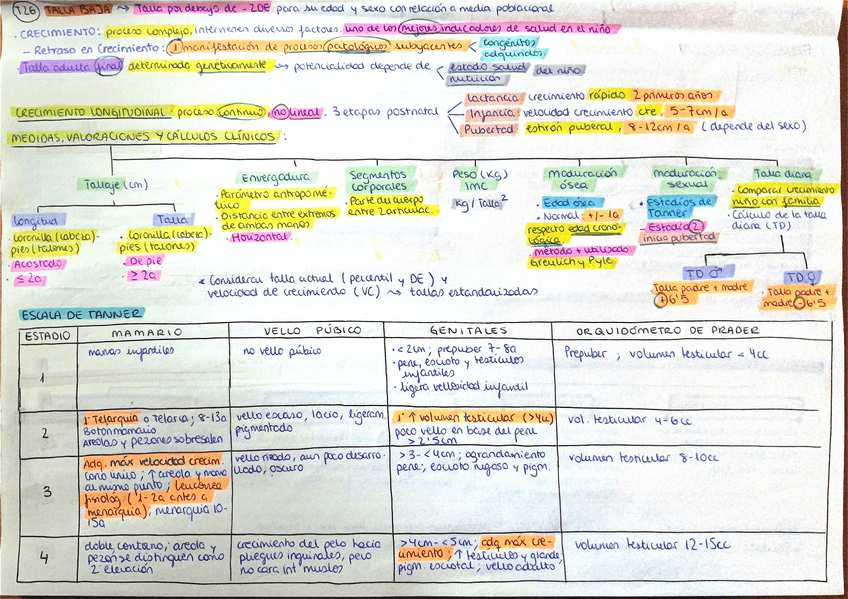 T26 TALLA BAJA → Talla por debajo de -2DE para su edad y sexo con relación a media poblacional
· CRECIMIENTO: proceso complejo, intervienen diversos factores. uno de los mejores indicadores de salud en el niño
- Retraso en Crecimiento: 1ª manifestación de procesos patológicos subyacentes < congénitos
adquiridos.
Talla adulta final determinada genéticamente → potencialidad depende de < estado salud del niño
nutrición
CRECIMIENTO LONGITUDINAL: proceso continuo, no lineal. 3 etapas postnatal
Lactancia crecimiento rápido 2 primeros años
Infancia velocidad crecimiento cte 5-7cm/a
Pubertad estirón puberal, 8-12cm/a (depende del sexo)
MEDIDAS, VALORACIONES Y CÁLCULOS CLÍNICOS:
Tallaje (cm)
Longitud
· Coronilla (cabeza)-
pies (talones)
· Acostado
· ≤ 2a
Talla
· Coronilla (cabeza)-
pies (talones)
· De pie
· ≥ 2a
Envergadura
· Parámetro antropomé-
tico
· Distancia entre extremos
de ambas manos
· Horizontal
Segmentos
corporales
· Parte du cuerpo
entre 2 articulac.
Peso (Kg)
IMC
Kg/Talla²
maduración
ósea
· Edad ósea
· Normal: +/- 1a
respecto edad crono-
lógica
· método + utilizado
Greulich y Pyle
maduración
sexual
· Estadíos de
Tanner
- Estadío 2:
inicio pubertad
Talla diana
· Comparar crecimiento
niño con familia
· Cálculo de la talla
diana (TD)
TD ♂
Talla padre + madre
+ 6'5
TD ♀
Talla padre +
madre - 6'5
* Considerar talla actual (percentil y DE) y
velocidad de crecimiento (VC) → tallas estandarizadas
ESCALA DE TANNER
ESTADIO MAMARIO VELLO PÚBICO GENITALES ORQUIDÓMETRO DE PRADER
1
mamas infantiles
no vello púbico
· < 2cm; prepuber 7-8a
· pene, escroto y testículos
infantiles
· ligera vellosidad infantil
Prepuber ; volumen testicular < 4cc
2
1º Telarquia o Telaria; 8-13a
Botón mamario
Areolas y pezones sobresalen
vello escaso, lacio, ligeram.
pigmentado
1º ↑ volumen testicular (>4cc)
poco vello en base del pene
> 2'5cm
vol. testicular 4-6cc
3
Adq. máx velocidad crecim.
Cono único; ↑ areola y mama
al mismo punto; leucorrea
fisiológ. (1-2a antes a
menarquia), menarquia 10-
15a
vello rizado, aun poco desarro-
llado, oscuro
> 3 - < 4cm; agrandamiento
pene; escroto rugoso y pigm.
volumen testicular 8-10cc
4
doble contorno; areola y
pezón se distinguen como
2ª elevación
crecimiento del pelo hacia
pliegues inguinales, pero
no cara int muslos
> 4cm - < 5cm; adq máx cre-
cimiento; ↑ testículos y glande;
pigm. escrotal; vello adulto
volumen testicular 12-15cc